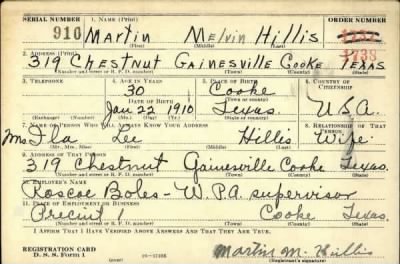 SERIAL NUMBER 1. NAME (Print) ORDER NUMBER
910 Martin Melvin Hillis
(First) (Middle) (Last)
2. ADDRESS (Print) 1738
319 Chestnut Gainesville Cooke Texas
(Number and street or R. F. D. number) (Town) (County) (State)
3. TELEPHONE 4. AGE IN YEARS 5. PLACE OF BIRTH 6. COUNTRY OF CITIZENSHIP
30 Cooke
DATE OF BIRTH (Town or county)
Jan 22 1910 Texas U.S.A.
(Exchange) (Number) (Mo.) (Day) (Yr.) (State or country)
7. NAME OF PERSON WHO WILL ALWAYS KNOW YOUR ADDRESS 8. RELATIONSHIP OF THAT PERSON
Mrs Lee Hillis Wife
(Mr., Mrs., Miss) (First) (Middle) (Last)
9. ADDRESS OF THAT PERSON
319 Chestnut Gainesville Cooke Texas
(Number and street or R. F. D. number) (Town) (County) (State)
10. EMPLOYER'S NAME
Roscoe Boles - W.P.A. supervisor
11. PLACE OF EMPLOYMENT OR BUSINESS
Precint 1 Cooke Texas
(Number and street or R. F. D. number) (Town) (County) (State)
I AFFIRM THAT I HAVE VERIFIED ABOVE ANSWERS AND THAT THEY ARE TRUE.
REGISTRATION CARD
D. S. S. Form 1 Martin M. Hillis
(Registrant's signature)